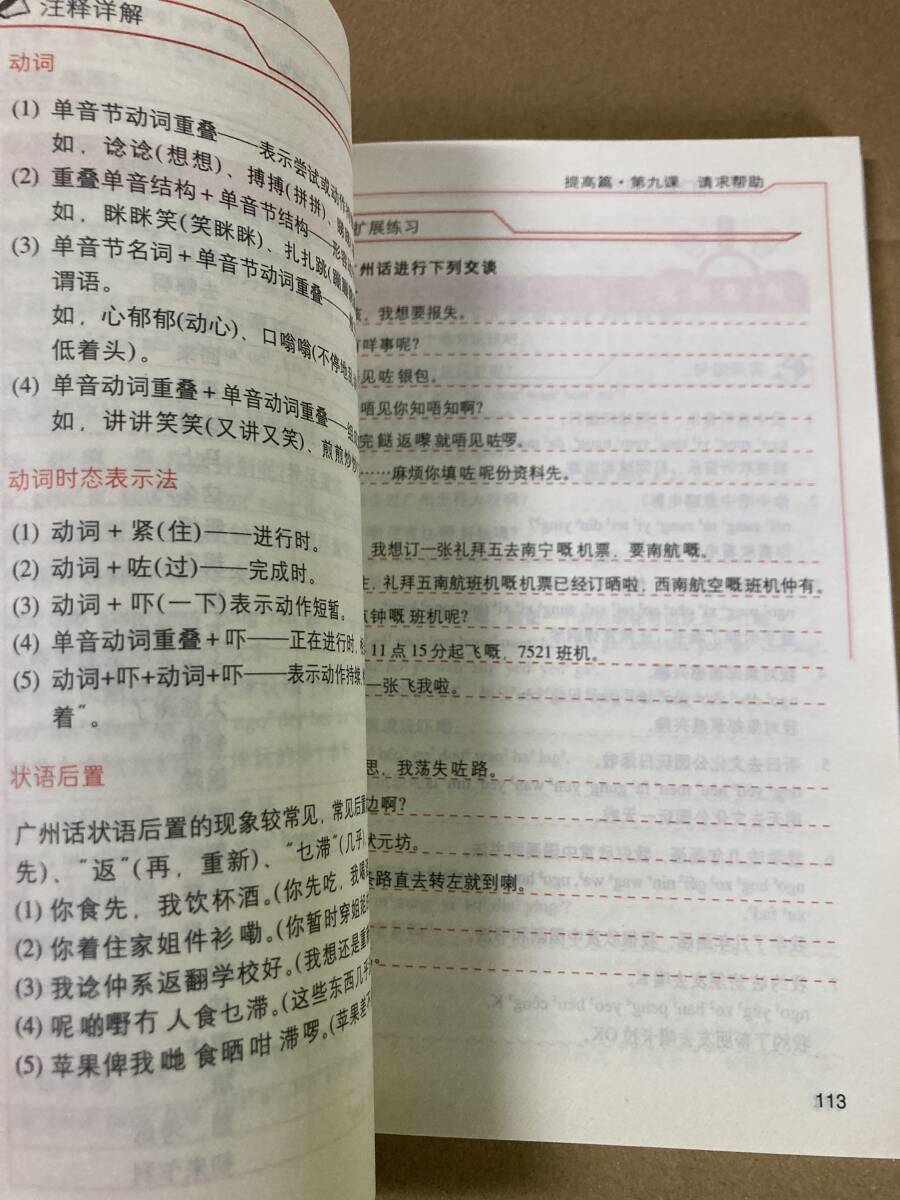 注释详解
动词
(1) 单音节动词重叠——表示尝试或动作
如，谂谂(想想)、搏搏(拼拼)、
(2) 重叠单音结构+单音节结构——形容
如，眯眯笑(笑眯眯)、扎扎跳(
(3) 单音节名词+单音节动词重叠——
谓语。
如，心郁郁(动心)、口嗡嗡(不停地
低着头)。
(4) 单音动词重叠+单音动词重叠——
如，讲讲笑笑(又讲又笑)、煎煎炒炒
动词时态表示法
(1) 动词+紧(住)——进行时。
(2) 动词+咗(过)——完成时。
(3) 动词+吓(一下)表示动作短暂。
(4) 单音动词重叠+吓——正在进行时，
(5) 动词+吓+动词+吓——表示动作持续
着”。
状语后置
广州话状语后置的现象较常见，常见后置
先)、“返”(再，重新)、“乜滞”(几乎)
(1) 你食先，我饮杯酒。(你先吃，我喝
(2) 你着住家姐件衫嘞。(你暂时穿姐姐
(3) 我谂仲系返翻学校好。(我想还是重
(4) 呢啲嘢冇人食乜滞。(这些东西几乎
(5) 苹果俾我哋食晒咁滞啰。(苹果差不
提高篇·第九课 请求帮助
扩展练习
州话进行下列交谈
，我想要报失。
有咩事呢?
见咗银包。
唔见你知唔知啊?
完餸返嚟就唔见咗啰。
……麻烦你填咗呢份资料先。
我想订一张礼拜五去南宁嘅机票，要南航嘅。
，礼拜五南航班机嘅机票已经订晒啦，西南航空嘅班机仲有。
钟嘅班机呢?
11点15分起飞嘅，7521班机。
一张飞我啦。
思，我荡失咗路。
边啊?
状元坊。
路直去转左就到喇。
113